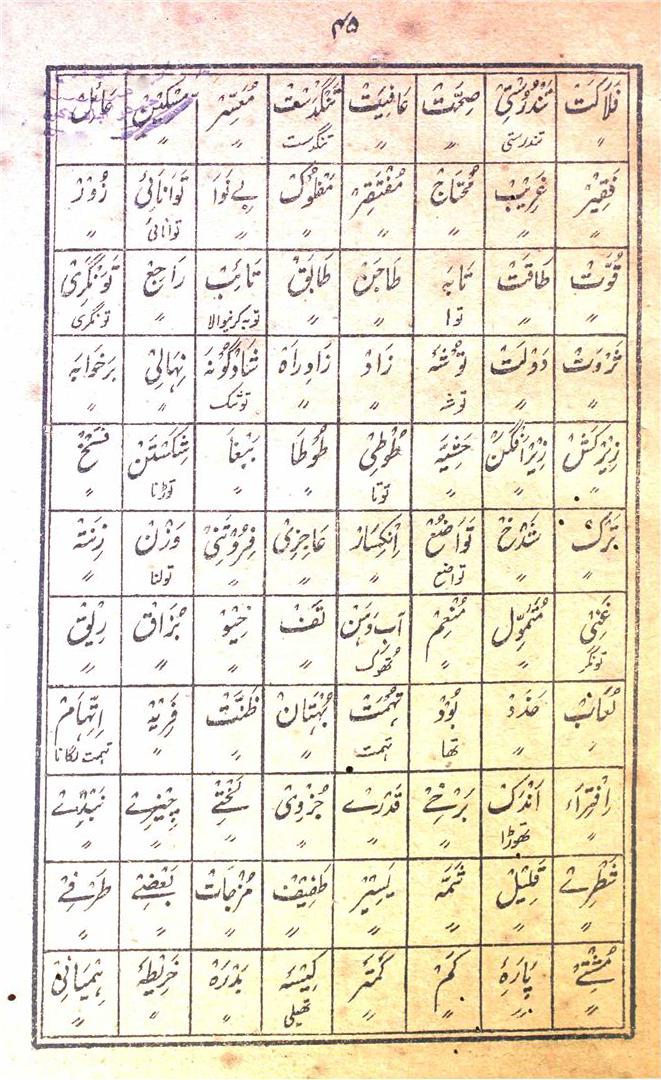 ۴۵
فَلاکَتْ تَنْدُرُسْتِیْ صِحَّتْ عَافِیَتْ تَنْگْدَسْت مُعْسِرْ مِسْکِیْن عَائِلْ
〃 تندرستی 〃 〃 تنگدست 〃 〃 〃
فَقِیْرْ غَرِیْبْ مُحْتَاجْ مُفْتَقِرْ مَفْلُوْکْ بے نَوَا تَوَانَائِیْ زُوْرْ
〃 〃 〃 〃 〃 〃 توانائی 〃
قُوَّتْ طَاقَتْ تَابَہ طَاجَنْ طَابَقْ تَائِبْ رَاجِعْ تَوَنْگَرِیْ
〃 〃 توا 〃 〃 توبہ کرنیوالا 〃 تونگری
ثَرْوَتْ دَوْلَتْ تُوْشَہ زَادْ زَادِ رَاہْ شَادْگُوْنَہ نِہَالِیْ بَرْخَوَابَہ
〃 〃 توشہ 〃 〃 توشک 〃 〃
زِیْرکَشْ زِیْرَافْگَنْ حَشِیَّہ طُوْطِیْ طُوْطَا بَبْغَا شِکَسْتَنْ فَسْخْ
〃 〃 〃 توتا 〃 〃 توڑنا 〃
بَرْکْ شَدْخْ تَوَاضُعْ اِنْکِسَارْ عَاجِزِیْ فِرُوْتَنِیْ وَزْنْ زِنَتہ
〃 〃 تواضع 〃 〃 〃 تولنا 〃
غَنِیْ مُتَمَوِّلْ مُنْعِمْ آبِ دَہَنْ تَفْ خِیُوْ بُزَاقْ رِیْقْ
تونگر 〃 〃 تھوک 〃 〃 〃 〃
لُعَابْ حَدَدْ بُوْد تُہْمَتْ بُہْتَانْ ظَنَّتْ فِرْیَہْ اِتِّہَامْ
〃 〃 تھا تہمت 〃 〃 〃 تہمت لگانا
اِفْتِرَاء اَنْدَکْ بَرْخِے قَدْرِے جُزْوِیْ لَخْتِے چِیْزِے نَبْذِے
〃 تھوڑا 〃 〃 〃 〃 〃 〃
شَطْرِے قَلِیْلْ شَمَّہ یَسِیْرْ طَفِیْفْ مُزْجَاتْ بَعْضِے طَرَفِے
〃 〃 〃 〃 〃 〃 〃 〃
مُشْتِے پَارَۂ کَمْ کَمْتَرْ کِیْسَہ بَدْرَہ خَرِیْطَہ ہِمْیَانِیْ
〃 〃 〃 〃 تھیلی 〃 〃 〃